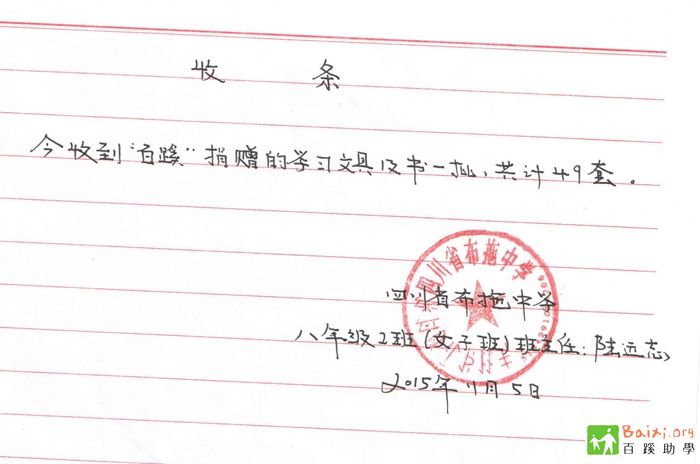 收 条
今收到“百蹊”捐赠的学习文具及书一批，共计49套。
四川省布拖中学
四川省布拖中学
八年级2班(女子班)班主任:陆远志
2015年11月5日
Baixi.org
百蹊助學